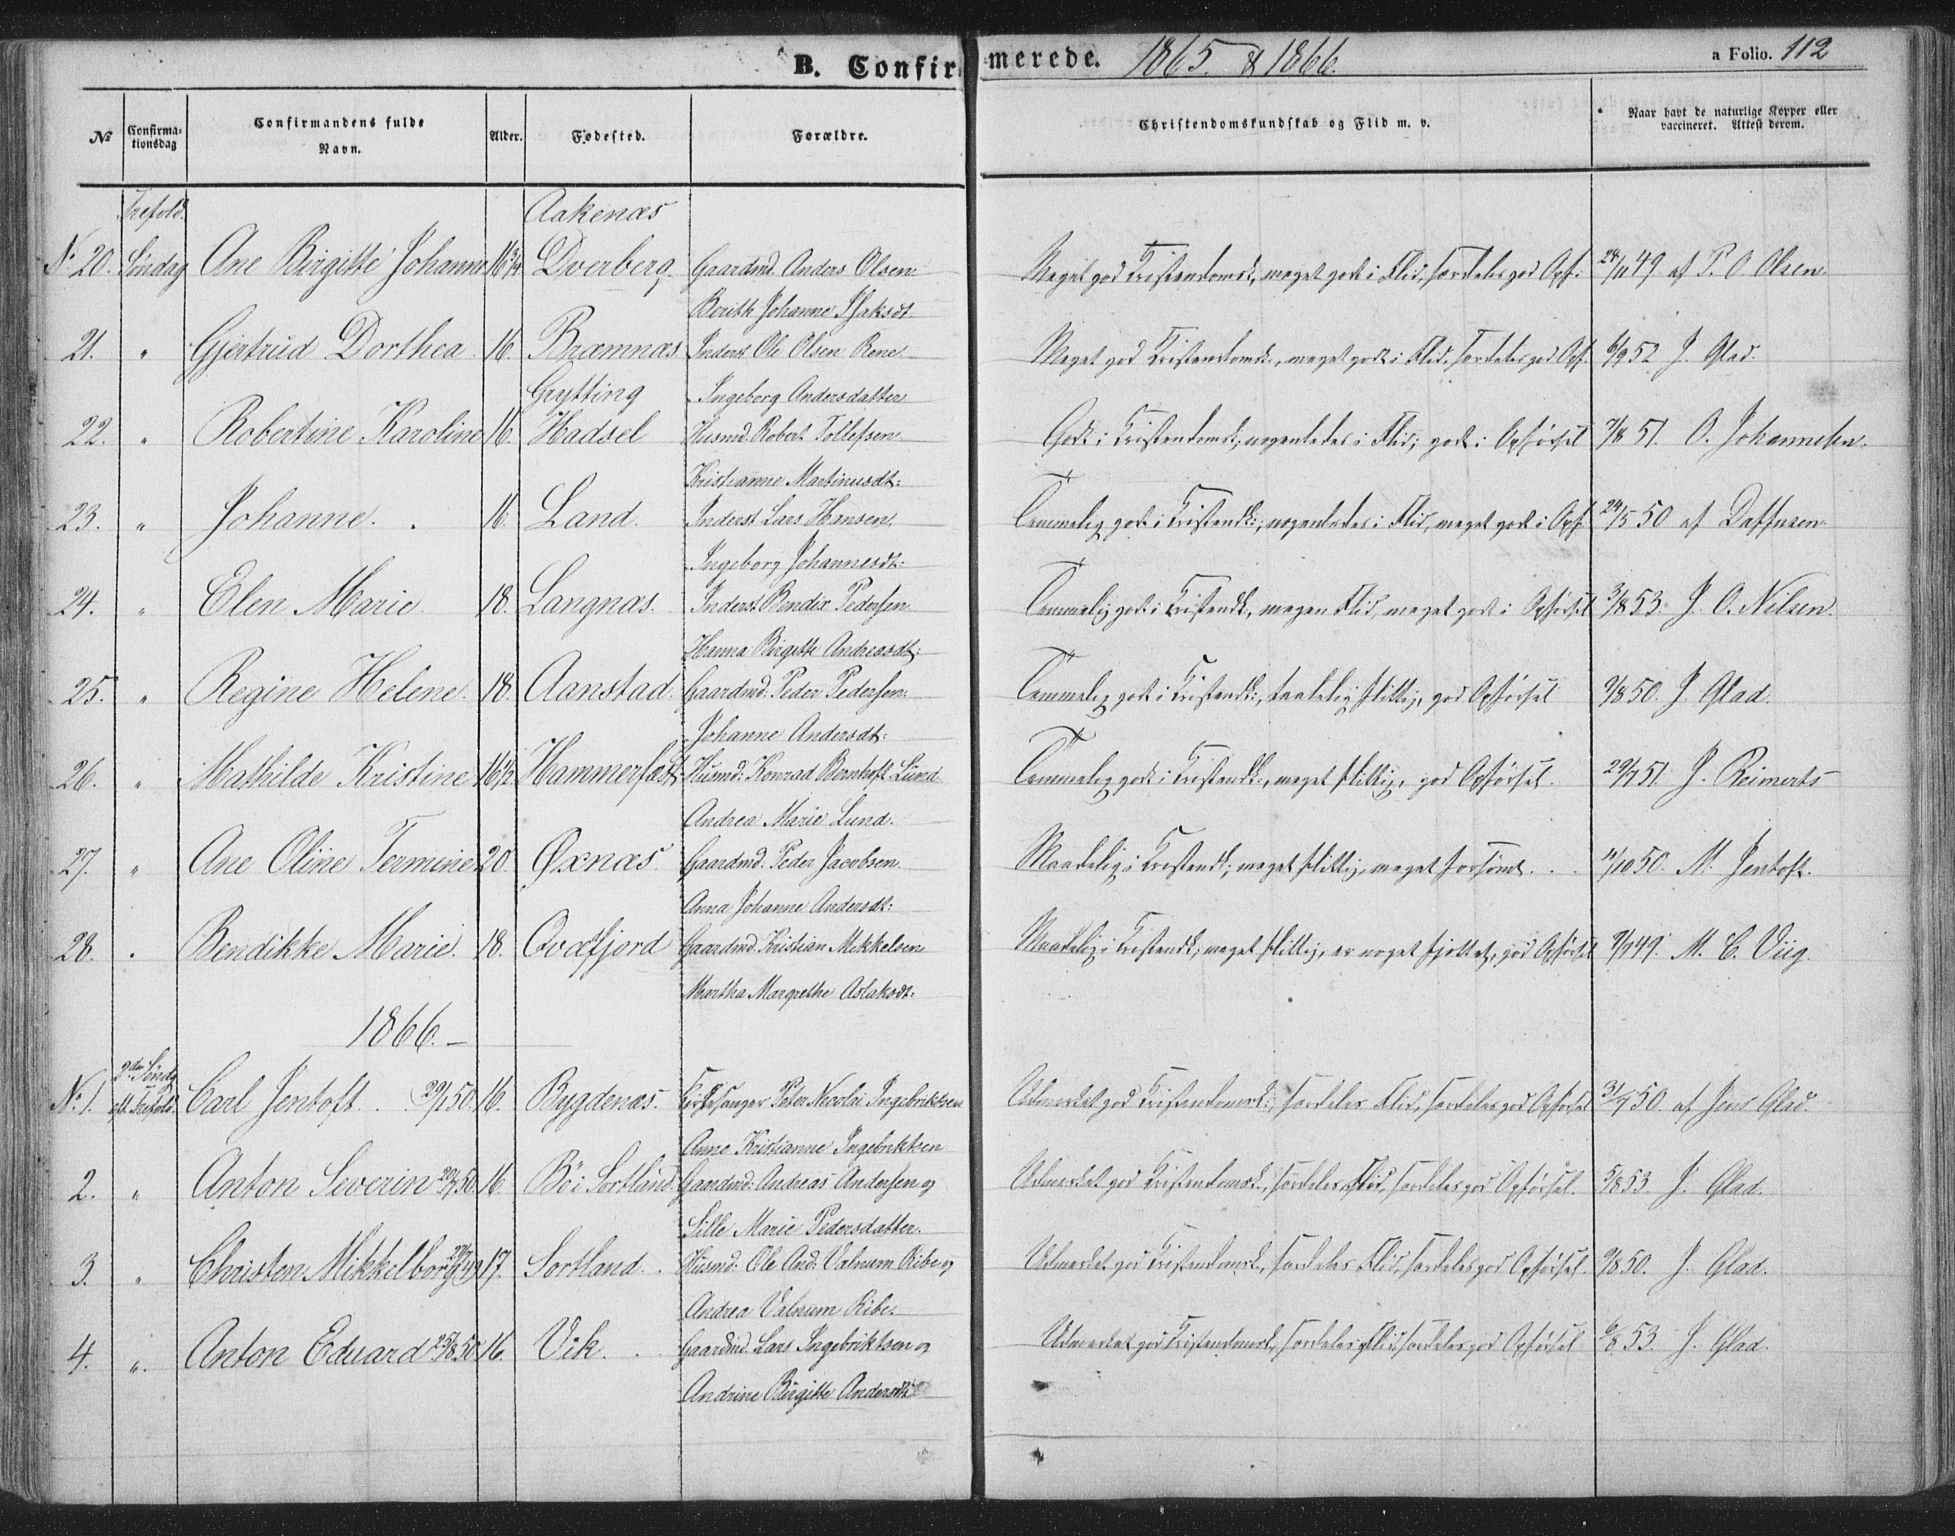 B. Confirmerede. 1865. & 1866. a Folio. 112
No Confirmationsdag Confirmandens fulde Navn. Alder. Fødested. Forældre. Christendomskundskab og Flid m. v. Naar havt de naturlige Kopper eller vaccineret. Attest derom.
Trefold. Aakenæs
No 20. Søndag Ane Birgitte Johanna 16 3/4 Dverberg Gaardmd. Anders Olsen Meget god Kristendomsk., meget godt i Flid, særdeles god Opf. 24/11 49. af P. O. Olsen
Berith Johanne
21. " Gjertrud Dorthea 16. Bræmnæs Inderst Ole Olsen Rene Meget god Kristendomsk., meget godt i Flid, særdeles god Opf. 6/9 52 J. Glad.
Grytting Ingeborg Andersdatter
22. " Robertine Karoline 16. Hadsel Husmd. Robert Tollefsen Godt i Kristendomsk., nogenledes i Flid, godt i Opførsel 7/8 51. O. Johannesen.
Kristianne Martinusdt:
23. " Johanne. 16. Land. Inderst Lars Hansen. Temmelig godt i Kristendk:, nogenledes i Flid, meget godt i Opf. 24/5 50 af
Ingeborg Johannesdt:
24. " Elen Marie 18. Langnæs. Inderst Bendix Pedersen Temmelig godt i Kristendk., megen Flid, meget godt i Opførsel 3/8 53. J. O. Nilsen.
Hanna Birgitte Andreasdt:
25. " Regine Helene. 18. Aanstad. Gaardmd. Peder Pedersen. Temmelig godt i Kristendk:, taalelig flittig, god Opførsel 9/8 50. J. Glad.
Johanne Andersdt:
26. " Mathilde Kristine 16 1/2 Hammerfæst. Husmd: Konrad Bernhoft Lund Temmelig godt i Kristendk:, meget flittig, god Opførsel. 29/7 51. J. Reimerts
Andrea Marie Lund.
27. " Ane Oline Termine 20. Øxnæs. Gaardmd. Peder Jacobsen. Maadelig i Kristendk:, meget flittig, meget forsømt. /10 50. M. Jentoft.
Anna Johanne Andersdt:
28. . Bendikke Marie. 18. Qvæfjord Gaardmd. Kristian Mikkelsen Maadelig i Kristendk:, meget flittig, er noget, god Opførsel 9/9 49. M. C. Viig.
Martha Margrethe Aslaksdt:
1866. —
2den Sønd.
No 1. eft. Trefold. Carl Jentoft. 29/1 50. 16. Bygdenæs. Kirkesanger Peter Nicolai Ingebriktsen Udmærket god Kristendomsk:, særdeles Flid, særdeles god Opførsel 31/7 50. af Jens Glad.
Anne Kristianne Ingebriktsen
2. " Anton Severin 20/7 50. 16. Bö i Sortland. Gaardmd: Andreas Andersen og Udmærket god Kristendomsk., særdeles Flid, særdeles god Opførsel. 5/8 53. J. Glad.
Sille Marie Pedersdatter.
3. " Christen Mikkelborg 49 17. Sortland. Husmd: Ole And: Valnum Ribe og Udmærket god Kristendomsk., særdeles Flid, særdeles god Opførsel. 9/8 50. J. Glad.
Andrea Valnum Ribe.
4. ". Anton Eduard 25/8 50. 16. Vik. Gaardmd. Lars Ingebriktsen og Udmærket god Kristendomsk., særdeles Flid, særdeles god Opførsel 6/8 53. J. Glad.
Andrine Birgitte Andersdt